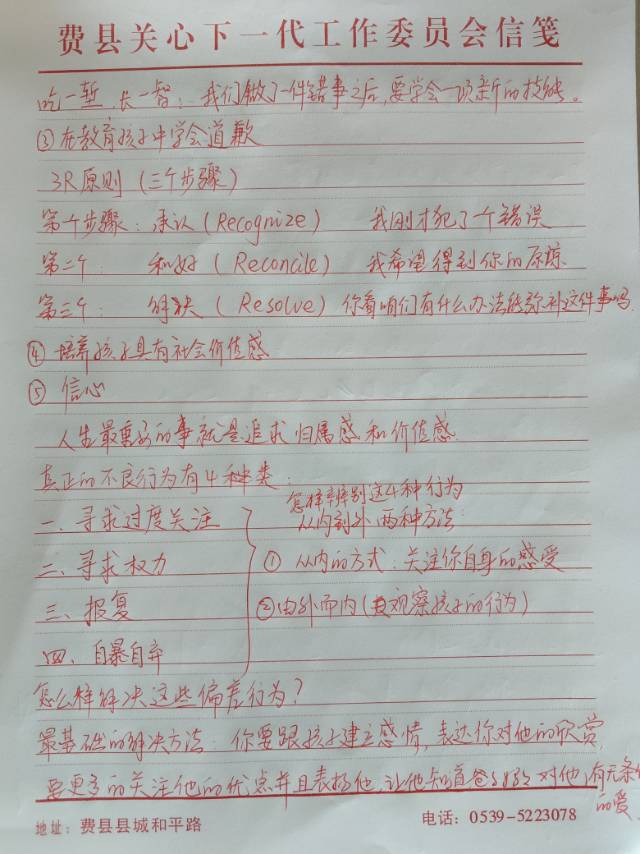 费县关心下一代工作委员会信笺
吃一堑,长一智:我们做了一件错事之后,要学会一项新的技能。
③在教育孩子中学会道歉
3R原则(三个步骤)
第一个步骤:承认(Recognize) 我刚才犯了一个错误
第二个: 和好(Reconcile) 我希望得到你的原谅
第三个: 解决(Resolve) 你看咱们有什么办法能弥补这件事吗
④培养孩子具有社会价值感
⑤信心
人生最重要的事就是追求归属感和价值感.
真正的不良行为有4种类:
怎样辨别这4种行为
一、寻求过度关注 从内到外两种方法:
二、寻求权力 ①从内的方式:关注你自身的感受
三、报复 ②由外而内(观察孩子的行为)
四、自暴自弃
怎么样解决这些偏差行为?
最基础的解决方法:你要跟孩子建立感情,表达你对他的欣赏,
要更多的关注他的优点并且表扬他,让他知道爸妈对他有无条件
的爱
地址:费县县城和平路 电话:0539-5223078